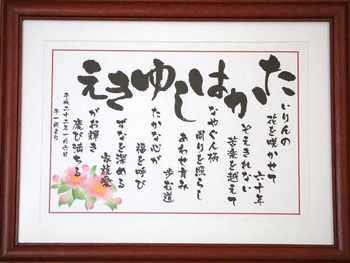 たかはしゆきえ
いりんの
花を咲かせて
六十年
ぞえきれない
苦楽を越えて
なやぐ人柄
周りを照らし
あわせ育み
歩む道
たかな心が
福を呼び
ずなを深める
家族愛
がお輝き
慶び満ちる
平成二十二年一月六日
より